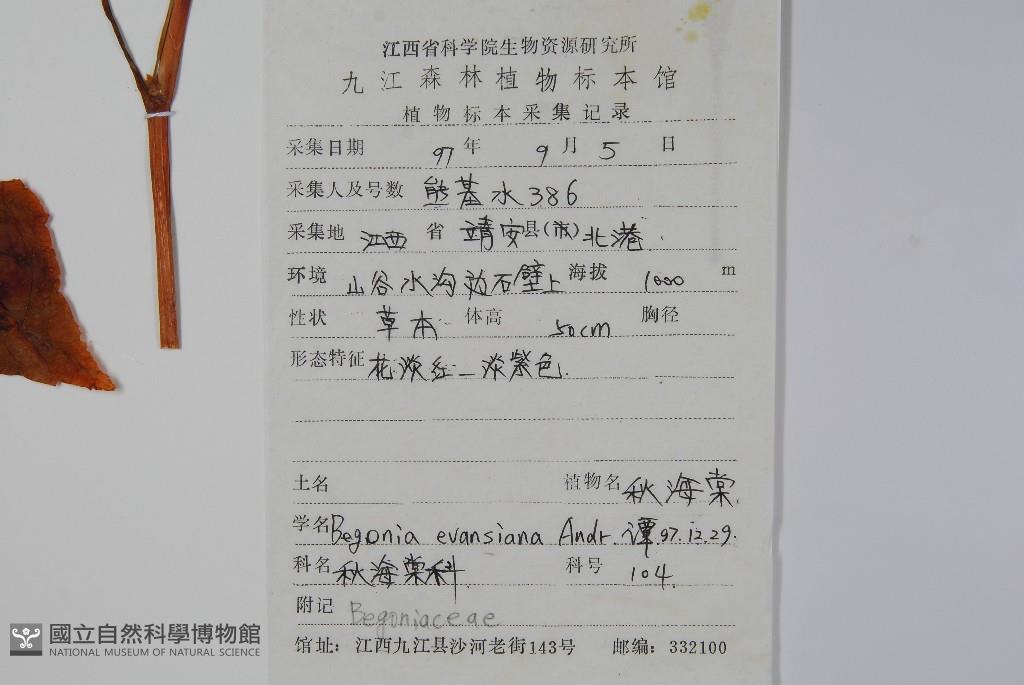 江西省科学院生物资源研究所
九江森林植物标本馆
植物标本采集记录
采集日期 97 年 9 月 5 日
采集人及号数 熊基水 386
采集地 江西 省 靖安 县(市) 北港
环境 山谷水沟边石壁上 海拔 1000 m
性状 草本 体高 50cm 胸径
形态特征 花淡红—淡紫色.
土名 植物名 秋海棠.
学名 Begonia evansiana Andr. 谭.97.12.29.
科名 秋海棠科 科号 104.
附记 Begoniaceae
馆址：江西九江县沙河老街143号 邮编：332100
國立自然科學博物館
NATIONAL MUSEUM OF NATURAL SCIENCE